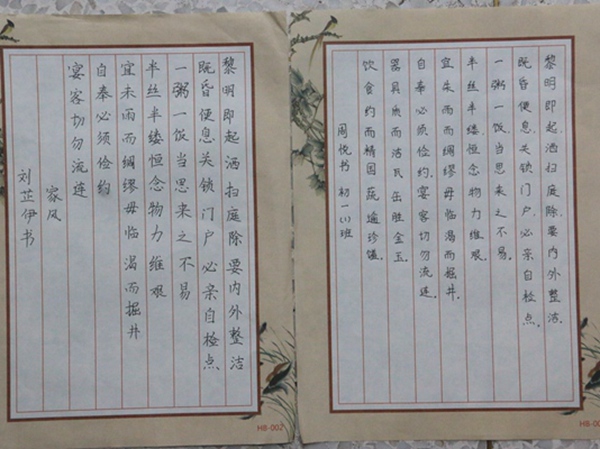 黎明即起洒扫庭除要内外整洁
既昏便息关锁门户必亲自检点
一粥一饭当思来之不易
半丝半缕恒念物力维艰
宜未雨而绸缪毋临渴而掘井
自奉必须俭约
宴客切勿流连
家风
刘芷伊书
HB-002
黎明即起,洒扫庭除,要内外整洁.
既昏便息,关锁门户,必亲自检点.
一粥一饭,当思来之不易.
半丝半缕,恒念物力维艰.
宜未雨而绸缪,毋临渴而掘井.
自奉必须俭约,宴客切勿流连.
器具质而洁,瓦缶胜金玉.
饮食约而精,园蔬逾珍馐.
周悦书 初一(1)班
HB-00